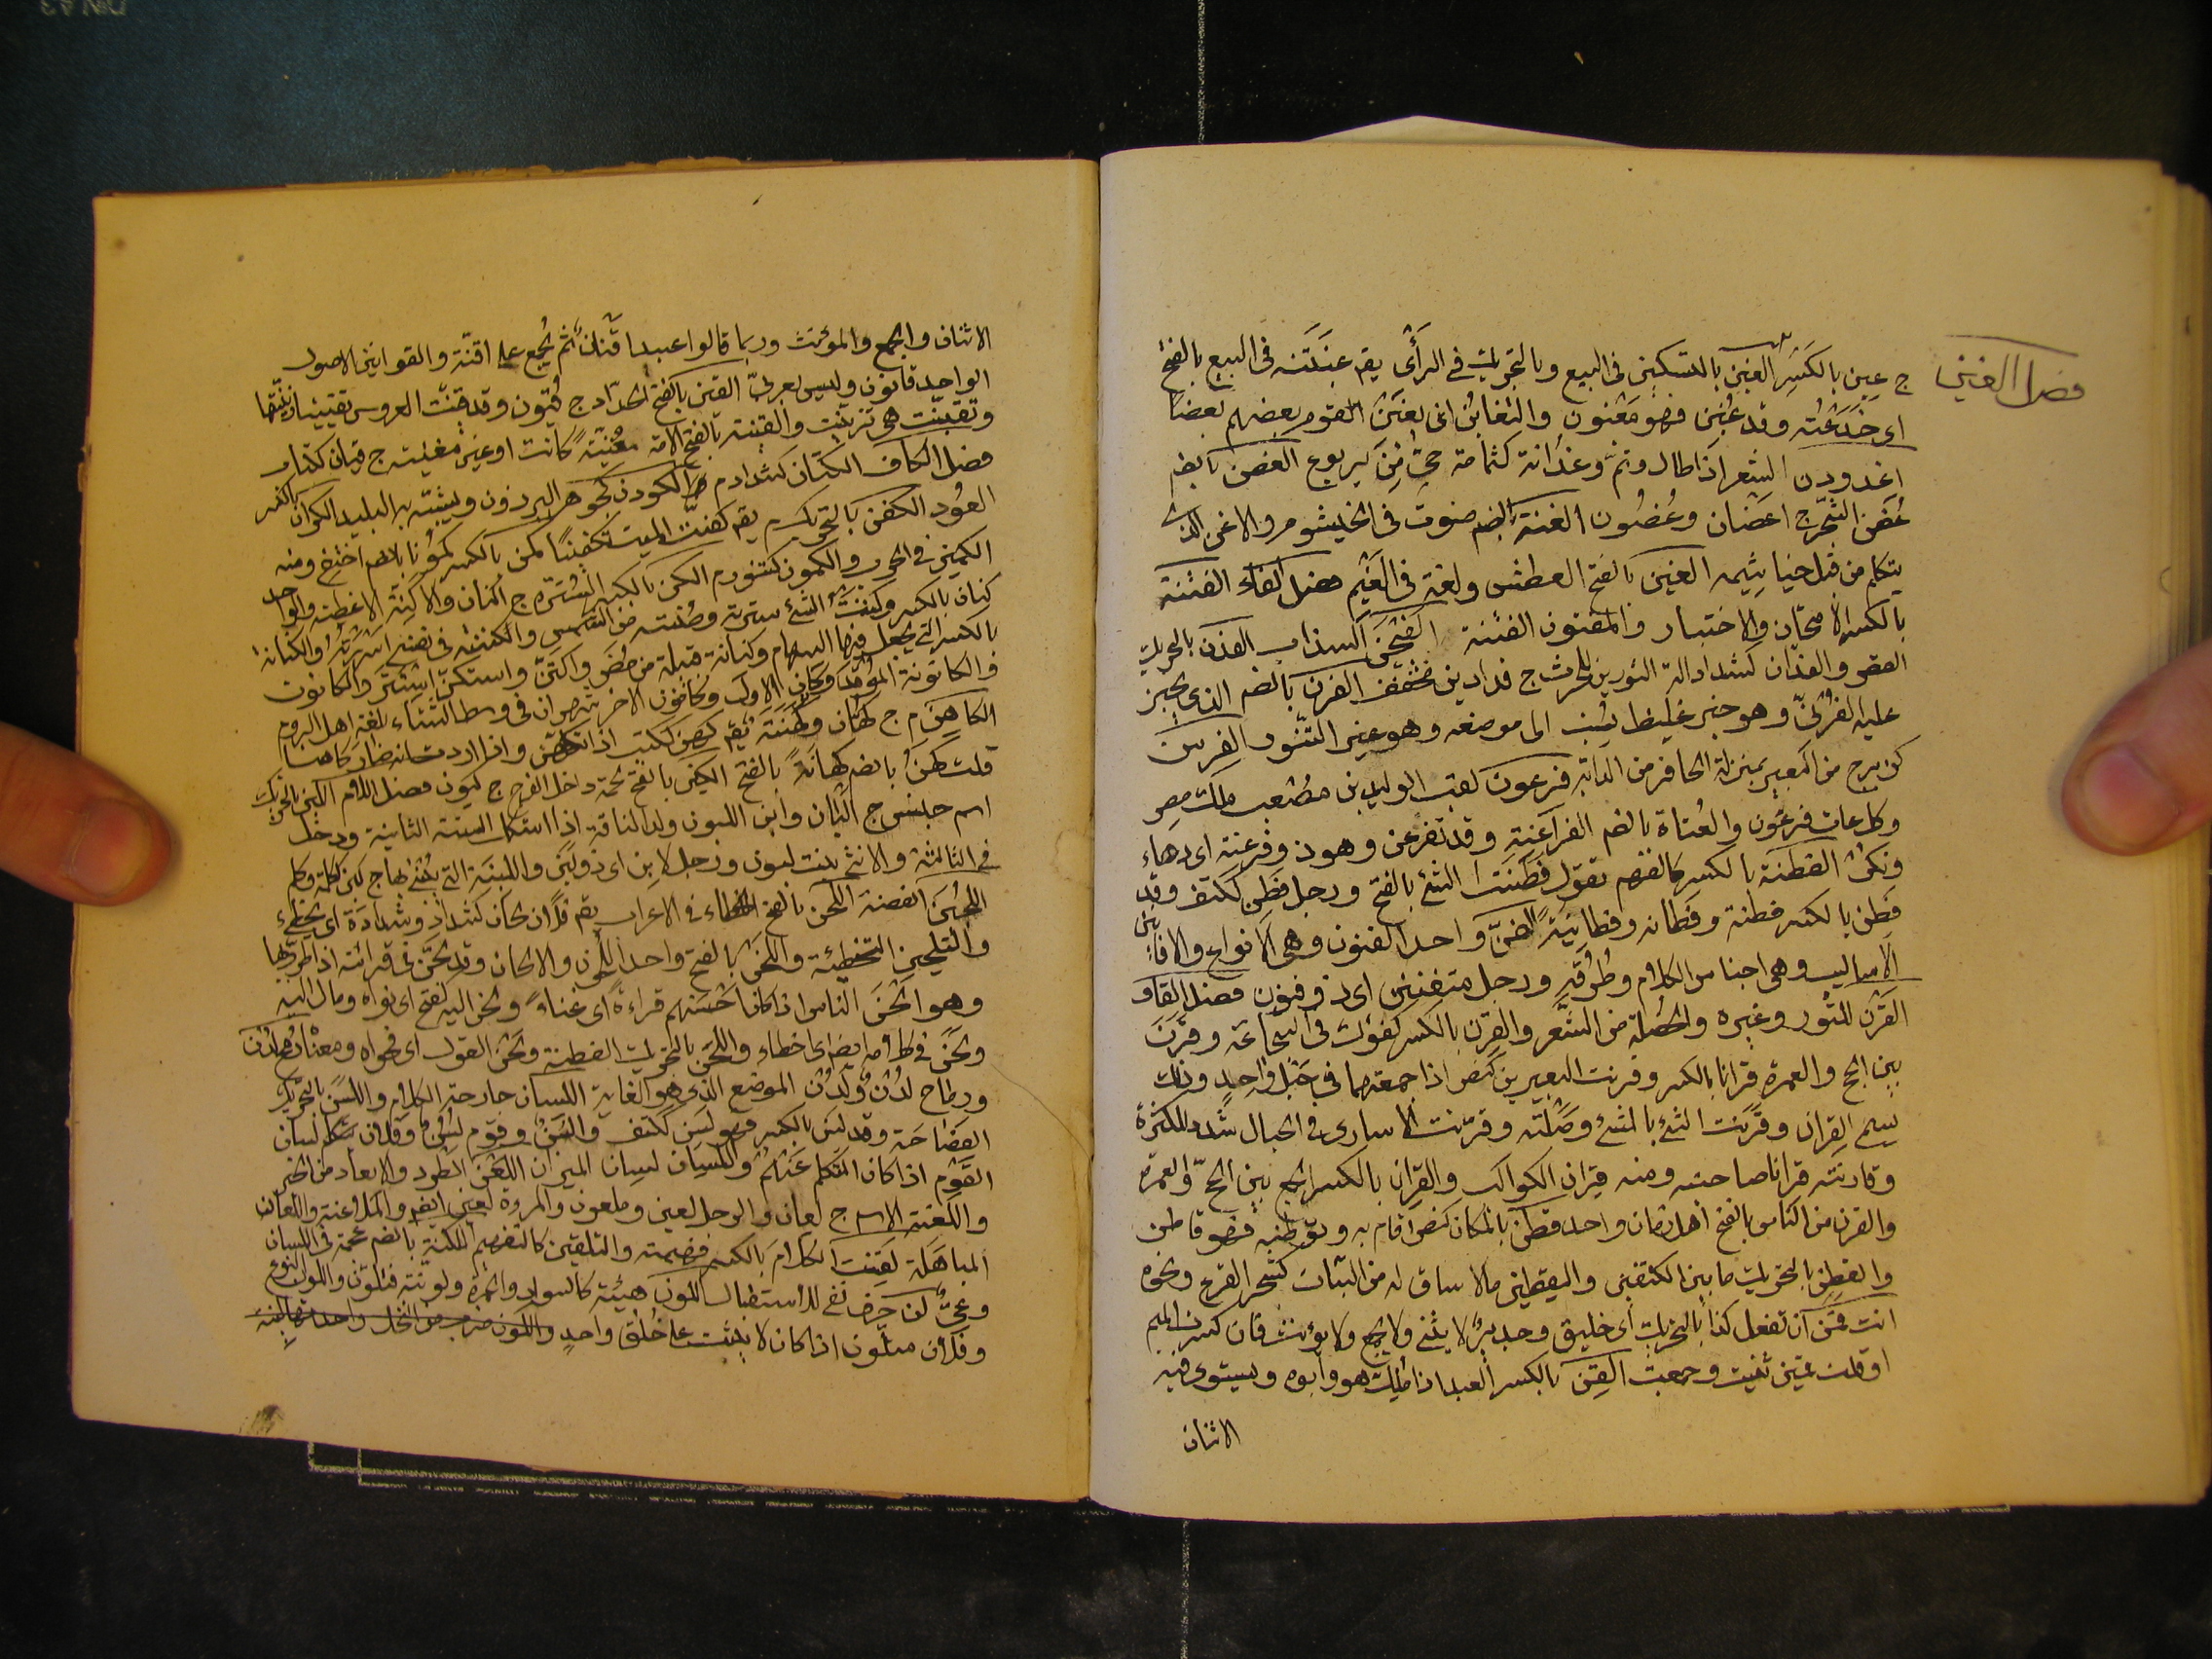 فصل الغين
ج عين بالكسر الغبن بالتسكين فى البيع وبالتحريك فى الرأى يقم غبنته فى البيع بالفتح
اى خدعته وقد غُبن فهو مغبون والتغابن ان يغبن القوم بعضهم بعضا
اغدودن الشعر اذا طال وتم وغدانة كثمامة حى من يربوع الغصن بالضم
غصن الشجر ج اغصان وغصون الغنة بالضم صوت فى الخيشوم والاغن الذى
يتكلم من قبل خياشيمه الغين بالفتح العطش ولغة فى الغيم فصل الفاء الفتنة
بالكسر الامتحان والاختبار والمفتون الفتنة الفيجن السذاب الفدن بالتحريك
القصر والفدان كشداد الة الثورين للحرث ج فدادين مخفف الفرن بالضم الذى يخبز
عليه الفرنى وهو خبز غليظ نسب الى موضعه وهو غير التنور الفرسن
كزبرج من البعير بمنزلة الحافر من الدابة فرعون لقب الوليد بن مصعب ملك مصر
وكل عات فرعون والعتاة بالضم الفراعنة وقد تفرعن وهو ذو فرعنة اى دهاء
ونكر الفطنة بالكسر كالفهم تقول فطنت الشئ بالفتح ورجل فطن ككتف وقد
فطن بالكسر فطنة وفطانه وفطانية الفن واحد الفنون وهى الانواع والافانين
الاساليب وهى اجناس الكلام وطرقه ورجل متفنن اى ذو فنون فصل القاف
القرن للثور وغيره والخصلة من الشعر والقرن بالكسر كفؤك فى الشجاعة وقرن
بين الحج والعمرة قرانا بالكسر وقرنت البعيرين كنصر اذا جمعتهما فى حبل واحد وذلك
يسم القران وقرنت الشئ بالشئ وصلته وقرنت الاسارى فى الحبال شدد للكثرة
وقارنته قرانا صاحبته ومنه قران الكواكب والقران بالكسر الجمع بين الحج والعمرة
والقرن من الناس بالفتح اهل زمان واحد قطن بالمكان كنصر اقام به وتوطنه فهو قاطن
والقطن بالتحريك ما بين الكتفين واليقطين ما لا ساق له من النبات كشجر القرع ونحوه
انت قمن ان تفعل كذا بالتحريك اى خليق وجدير لا يثنى ولا يجمع ولا يؤنث فان كسرت الميم
او قلت قمين ثنيت وجمعت القن بالكسر العبد اذا ملك هو وابوه ويستوى فيه
الاثنان
الاثنان والجمع والمؤنث وربما قالوا عبيد اقنان ثم يجمع على اقنة والقوانين الاصول
الواحد قانون وليس بعربى القين بالفتح الحداد ج قيون وقد قينت العروس تقيينا زينتها
وتقينت هى تزينت والقينة بالفتح الامة مغنية كانت او غير مغنية ج قيان ككتاب
فصل الكاف الكتان كشداد م الكودن كجوهر البرذون ويشبه به البليد الكران بالكسر
العود الكفن بالتحريك م يقم كفنت الميت تكفينا كمن بالكسر كمونا بالضم اختفى ومنه
الكمين فى الحرب والكمون كتنور م الكن بالكسر السترة ج اكنان والاكنة الاغطية والواحد
كنان بالكسر وكننت الشئ سترته وصنته من الشمس واكننته فى نفسى اسررته والكنانة
بالكسر التى يجعل فيها السهام وكنانة قبيلة من مضر واكتن واستكن استتر والكانون
والكانونة الموقد وكانون الاول وكانون الاخر شهران فى وسط الشتاء بلغة اهل الروم
الكاهن م ج كهان وكهنة يقم كهن ككتب اذا تكهن واذا اردت انه صار كاهنا
قلت كهن بالضم كهانة بالفتح الكين بالفتح لحمة داخل الفرج ج كيون فصل اللام اللبن بالتحريك
اسم جنس ج البان وابن اللبون ولد الناقة اذا استكمل السنة الثانية ودخل
فى الثالثة والانثى بنت لبون ورجل لابن اى ذو لبن واللبنة التى يبنى بها ج لبن ككلمة وكلم
اللجين الفضة اللحن بالفتح الخطاء فى الاعراب يقم فلان لحان كشداد وشدادة اى يخطئ
والتلحين التخطئة واللحن بالفتح واحد اللحون والالحان وقد لحن فى قرائته اذا طرب بها
وهو الحن الناس اذا كان احسنهم قراءة اى غناء ولحن اليه كفتح اى نواه ومال اليه
ولحن فى كلامه ايضا اى اخطاء واللحن بالتحريك الفطنة ولحن القول اى فحواه ومعناه لدن
ورماح لدن ولدن الموضع الذى هو الغاية اللسان جارحة الكلام واللسن بالتحريك
الفصاحة وقد لسن بالكسر فهو لسن ككتف والسن وقوم لسن وفلان لسان
القوم اذا كان المتكلم عنهم واللسان لسان الميزان اللعن الطرد والابعاد من الخير
واللعنة الاسم ج لعان والرجل لعين وملعون والمروة لعين ايضم والملاعنة واللعان
المباهلة لقنت الكلام بالكسر فهمته والتلقين كالتفهيم اللكنة بالضم عجمة فى اللسان
وعى لن حرف نفى للاستقبال اللون هيئة كالسواد والحمرة ولونته فتلون واللون النوع
وفلان متلون اذا كان لا يثبت على خلق واحد واللون ضرب من النخل واحدتها لينة